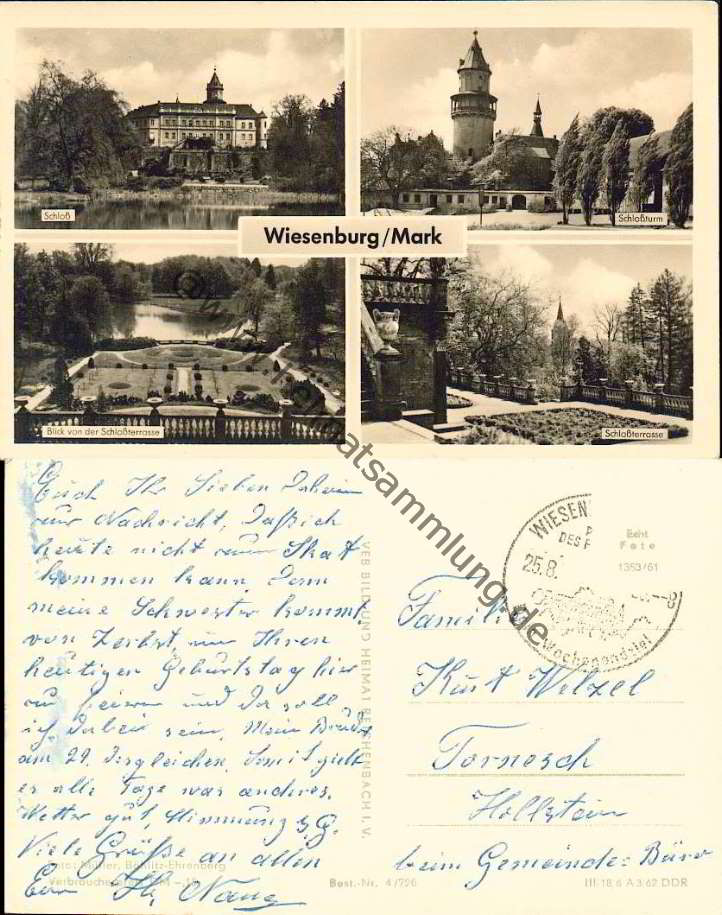 Schloß
Schloßturm
Wiesenburg/Mark
Blick von der Schloßterrasse
Schloßterrasse
Euch Ihr Lieben daheim
zur Nachricht, daß ich
heute nicht zum Skat
kommen kann, denn
meine Schwester kommt
von Zerbst, um Ihren
heutigen Geburtstag hier
zu feiern und da soll
ich dabei sein. Mein Bruder
am 29. dergleichen. Somit gibt
es alle Tage was anderes.
Wetter gut, Stimmung s. g.
Viele Grüße an allen
Euer
Foto: Müller, Böhlitz-Ehrenberg
Verbraucherpreis M
VEB BILD UND HEIMAT REICHENBACH I. V.
Best.-Nr. 4/726
WIESEN
DES F
25.8.
-8
Wochenendziel
Echt
Foto
1353/61
Familie
Kurt Welzel
Tornesch
Hollstein
beim Gemeinde-Büro
III/18/6 A 3/62 DDR
ansichtskartensammlung.de